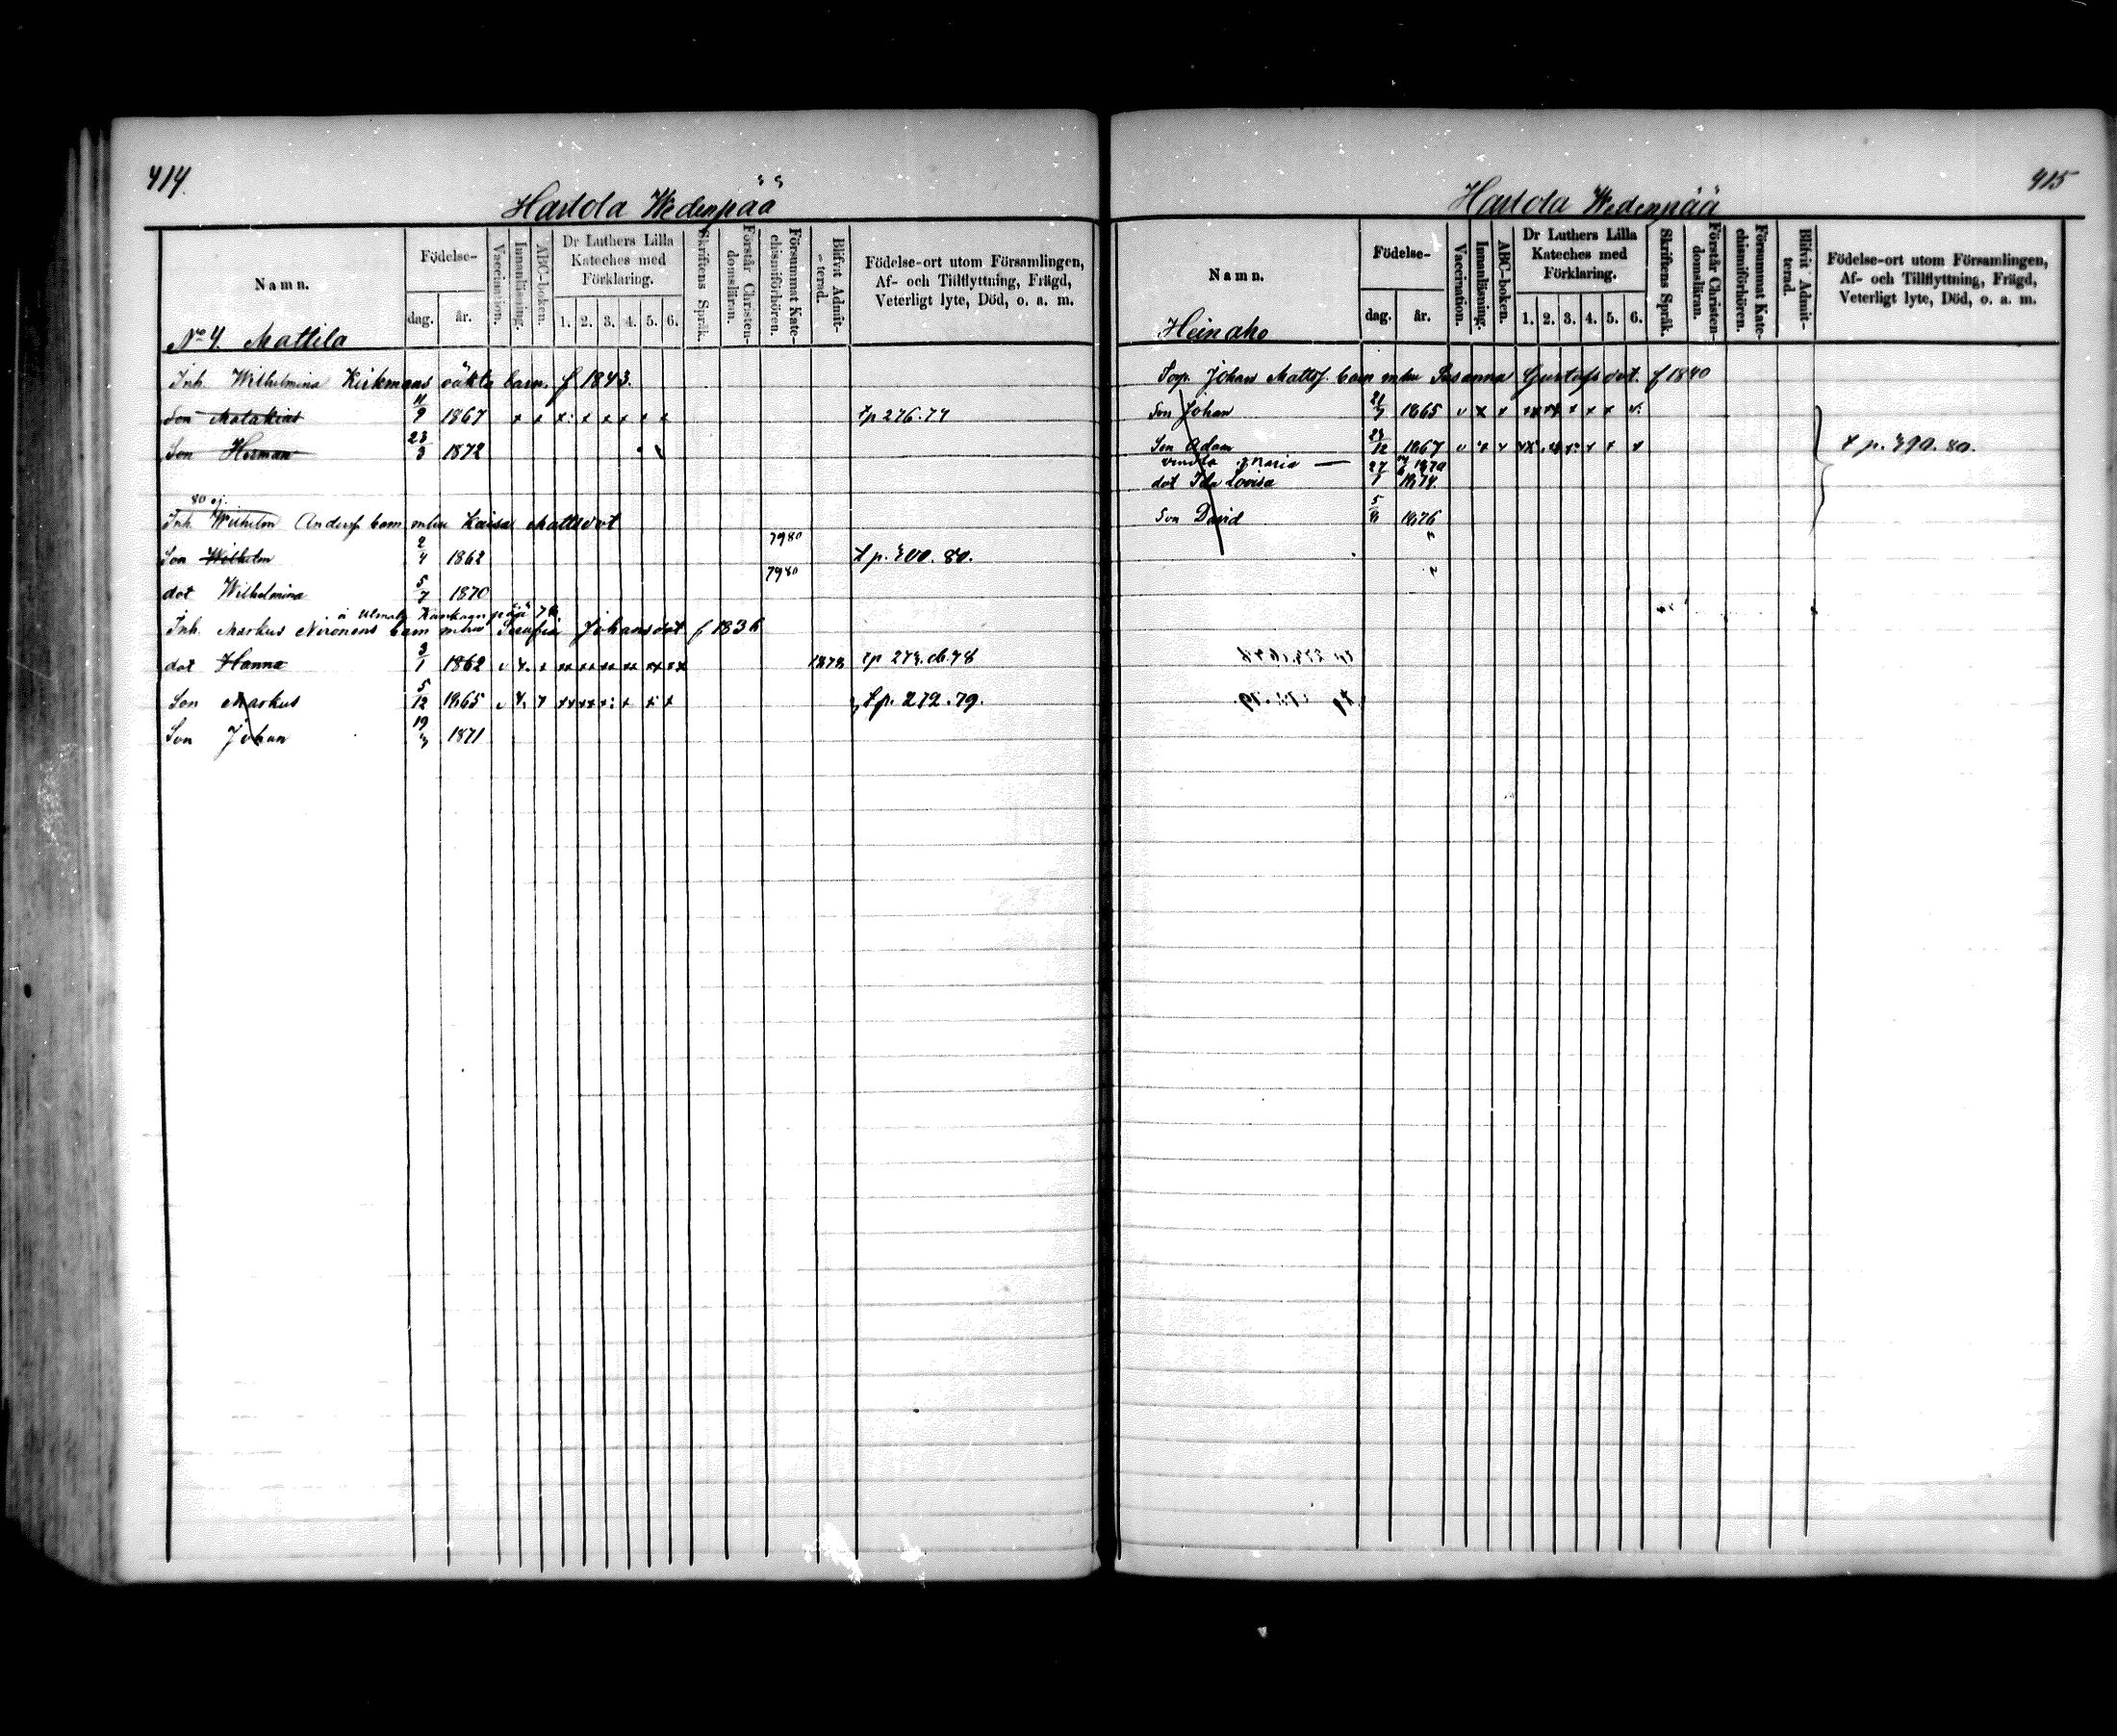 414.
Hartola Wedenpää
Namn.
Födelse-
dag.
år.
Vaccination.
Innanläsning.
ABC-boken.
Dr Luthers Lilla
Kateches med
Förklaring.
1. 2. 3. 4. 5. 6.
Skriftens Språk.
Förstår Christen-
domsläran.
Försummat Kate-
chismiförhören.
Blifvit Admit-
terad.
Födelse-ort utom Församlingen,
Af- och Tillflyttning, Frägd,
Veterligt lyte, Död, o. a. m.
No 4. Mattila
Inh. Wilhelmina Kirkmans oäkta barn. f 1843.
Son Malakias 11/9 1867 tp 276.77
Son Herman 23/3 1872
80 ej.
Inh. Wilhelm Andersf. barn m hu Kaisa Mattsdot
Son Wilhelm 2/4 1862 7980 t p. 300. 80.
dot Wilhelmina 5/7 1870 7980
Kankaanpää
Inh. Markus Nironens barn m hu Serafia Johansdot f 1836
dot Hanna 3/1 1862 1878 tp 273. 78
Son Markus 5/12 1865 t p. 272. 79.
Son Johan 19/3 1871
415
Hartola Wedenpää
Namn.
Födelse-
dag.
år.
Vaccination.
Innanläsning.
ABC-boken.
Dr Luthers Lilla
Kateches med
Förklaring.
1. 2. 3. 4. 5. 6.
Skriftens Språk.
Förstår Christen-
domsläran.
Försummat Kate-
chismiförhören.
Blifvit Admit-
terad.
Födelse-ort utom Församlingen,
Af- och Tillflyttning, Frägd,
Veterligt lyte, Död, o. a. m.
Heinaho
Torp. Johan Mattsf. barn m hu Susanna Gustafsdot. f 1840
Son Johan 21/7 1865
Son Adam 1867 t p. 390. 80.
Maria 1870
dot Ida Lovisa 27/1 1874.
Son David 1876